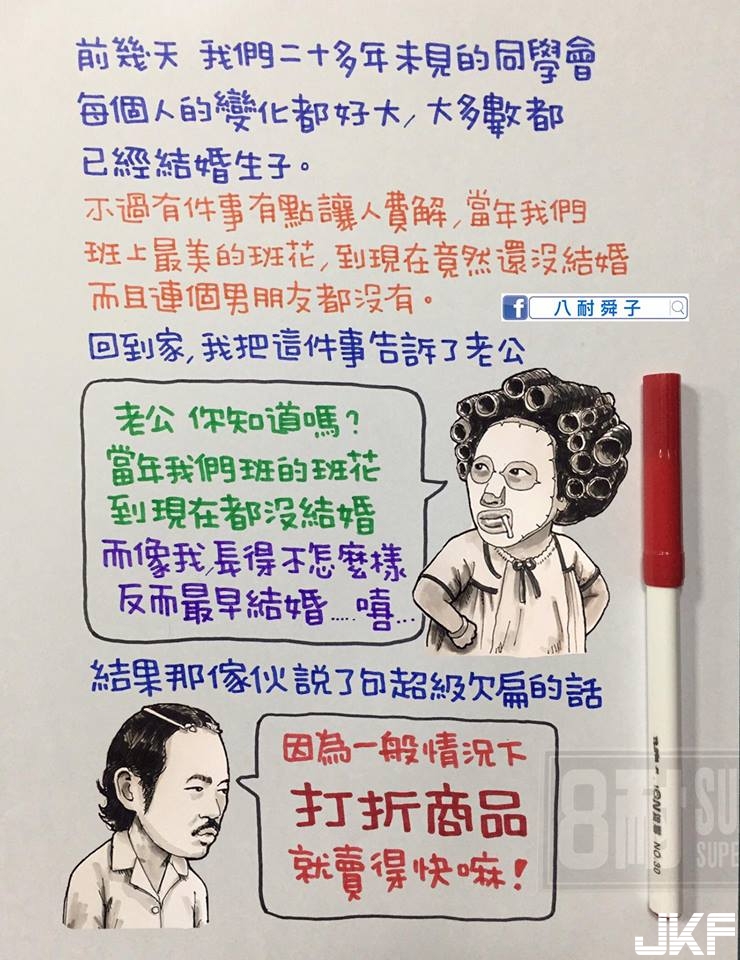 前幾天 我們二十多年未見的同學會
每個人的變化都好大，大多數都
已經結婚生子。
不過有件事有點讓人費解，當年我們
班上最美的班花，到現在竟然還沒結婚
而且連個男朋友都沒有。
八耐舜子
回到家，我把這件事告訴了老公
老公 你知道嗎？
當年我們班的班花
到現在都沒結婚
而像我，長得不怎麼樣
反而最早結婚.....嘻...
結果那傢伙說了句超級欠扁的話
因為一般情況下
打折商品
就賣得快嘛！
8耐 SU
SUPE
NO.30
JKF